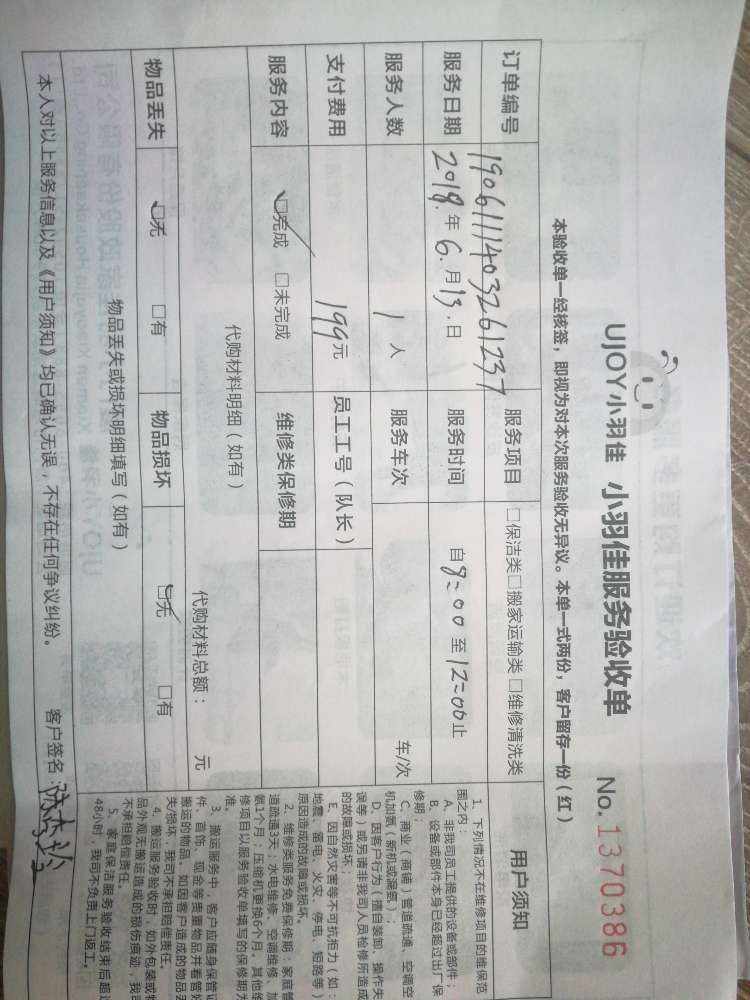 UJOY小羽佳 小羽佳服务验收单 No. 1370386
本验收单一经核签，即视为对本次服务验收无异议。本单一式两份，客户留存一份（红）
订单编号 1906111403261237 服务项目 □保洁类□搬家运输类□维修清洗类
服务日期 2019.年6.月13.日 服务时间 自9:00至12:00止
服务人数 1人 服务车次 车/次
支付费用 199元 员工工号（队长）
服务内容 ☑完成 □未完成 维修类保修期
代购材料明细（如有）
代购材料总额： 元
物品丢失 ☑无 □有 物品损坏 ☑无 □有
物品丢失或损坏明细填写（如有）
本人对以上服务信息以及《用户须知》均已确认无误，不存在任何争议纠纷。 客户签名：
用户须知
1、下列情况不在维修项目的维保范
围之内：
A、非我司员工提供的设备或部件；
B、设备或部件本身已经超过出厂保
修期；
C、商业（商铺）管道疏通、空调空
机加氨（新机或漏氨）；
D、因客户行为（擅自装卸、操作失
误等）或另请非我司人员检修所造成
的故障或损坏；
E、因自然灾害等不可抗拒力（如：
地震、雷电、火灾、停电、短路等）
原因造成的故障或损坏。
2、维修类服务免费保修期：家庭管
道疏通3天；水电维修、空调维修、加
氨1个月；压缩机更换6个月。其他维
修项目以服务验收单填写的保修期为
准。
3、搬运服务中，客户应随身保管证
件、首饰、现金等贵重物品并看管好
搬运的物品，如因客户造成的物品丢
失/损坏，我司不承担赔偿责任。
4、搬运服务验收时，如外包装或物
品外观无搬运造成的损伤痕迹，我司
不承担赔偿责任。
5、家庭保洁服务验收结束后超过
48小时，我司不负责上门返工。